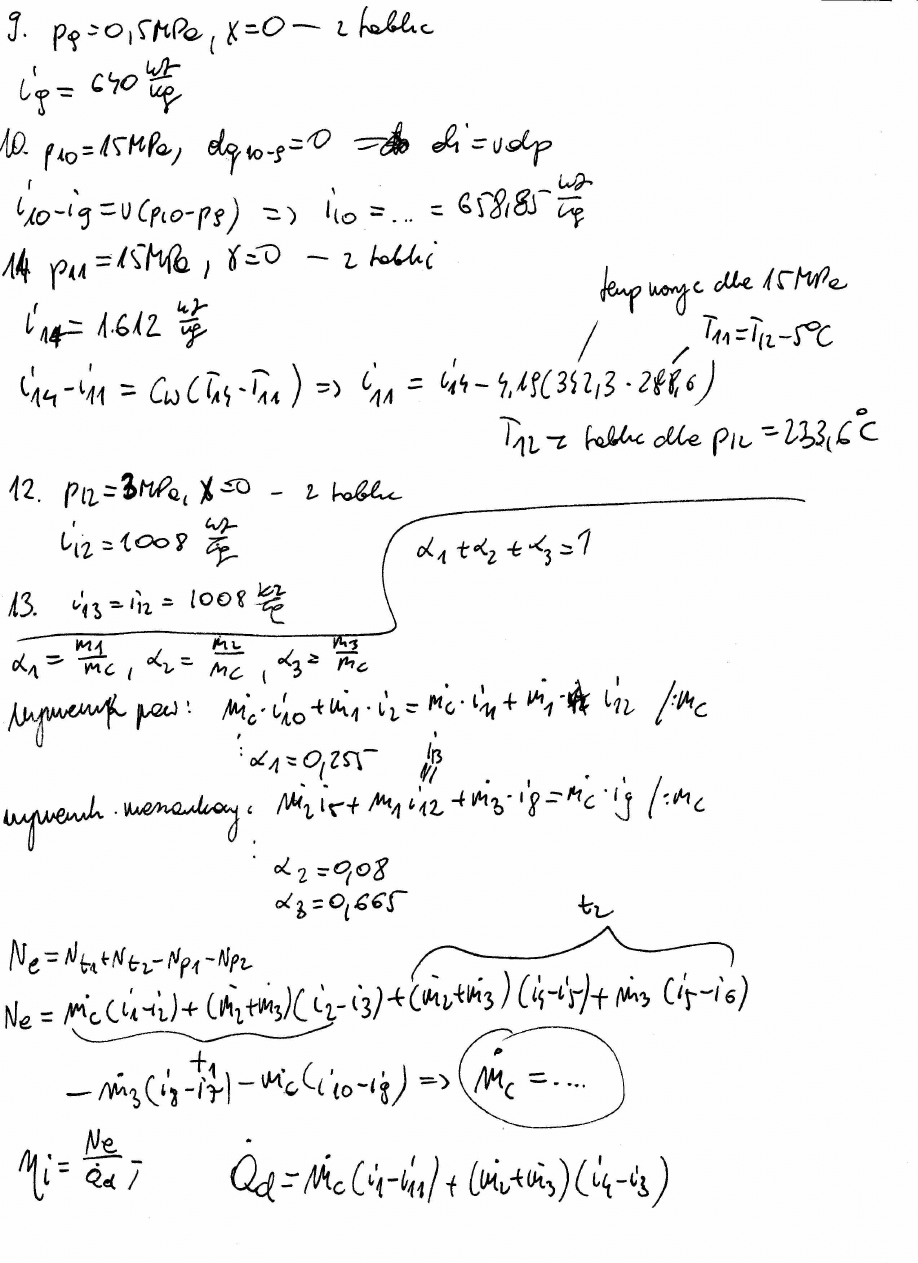 9. p₉=0,5MPa, x=0 – z tablic
i₉ = 640 kJ/kg
10. p₁₀=15MPa, dq₁₀₋₉=0 => di=vdp
i₁₀-i₉=v(p₁₀-p₉) => i₁₀ =...= 658,85 kJ/kg
14 p₁₁=15MPa, x=0 – z tablic
i₁₄= 1.612 kJ/kg
temp nasyc dla 15MPa
T₁₁=T₁₂-5°C
i₁₄-i₁₁ = Cw(T₁₄-T₁₁) => i₁₁ = i₁₄-4,19(342,3-228,6)
T₁₂ z tablic dla p₁₂ =233,6°C
12. p₁₂=3MPa, x=0 - z tablic
i₁₂=1008 kJ/kg
α₁+α₂+α₃=1
13. i₁₃=i₁₂= 1008 kJ/kg
α₁= ṁ₁/ṁc, α₂= ṁ₂/ṁc, α₃= ṁ₃/ṁc
ṁc·i₁₀+ṁ₁·i₂=ṁc·i₁₁+ṁ₁· i₁₂ /:ṁc
: α₁=0,255 i₁₃
ṁ₂i₅+ṁ₁i₁₂+ṁ₃·i₈=ṁc·i₉ /:ṁc
:
α₂=0,08
α₃=0,665
t₂
Ne=Nt₁+Nt₂-Np₁-Np₂
Ne = ṁc(i₁-i₂)+(ṁ₂+ṁ₃)(i₂-i₃)+(ṁ₂+ṁ₃)(i₄-i₅)+ṁ₃(i₅-i₆)
t₁
-ṁ₃(i₈-i₇)-ṁc(i₁₀-i₉) => ṁc =....
ηi= Ne/Q̇d ; Q̇d=ṁc(i₁-i₁₁)+(ṁ₂+ṁ₃)(i₄-i₃)